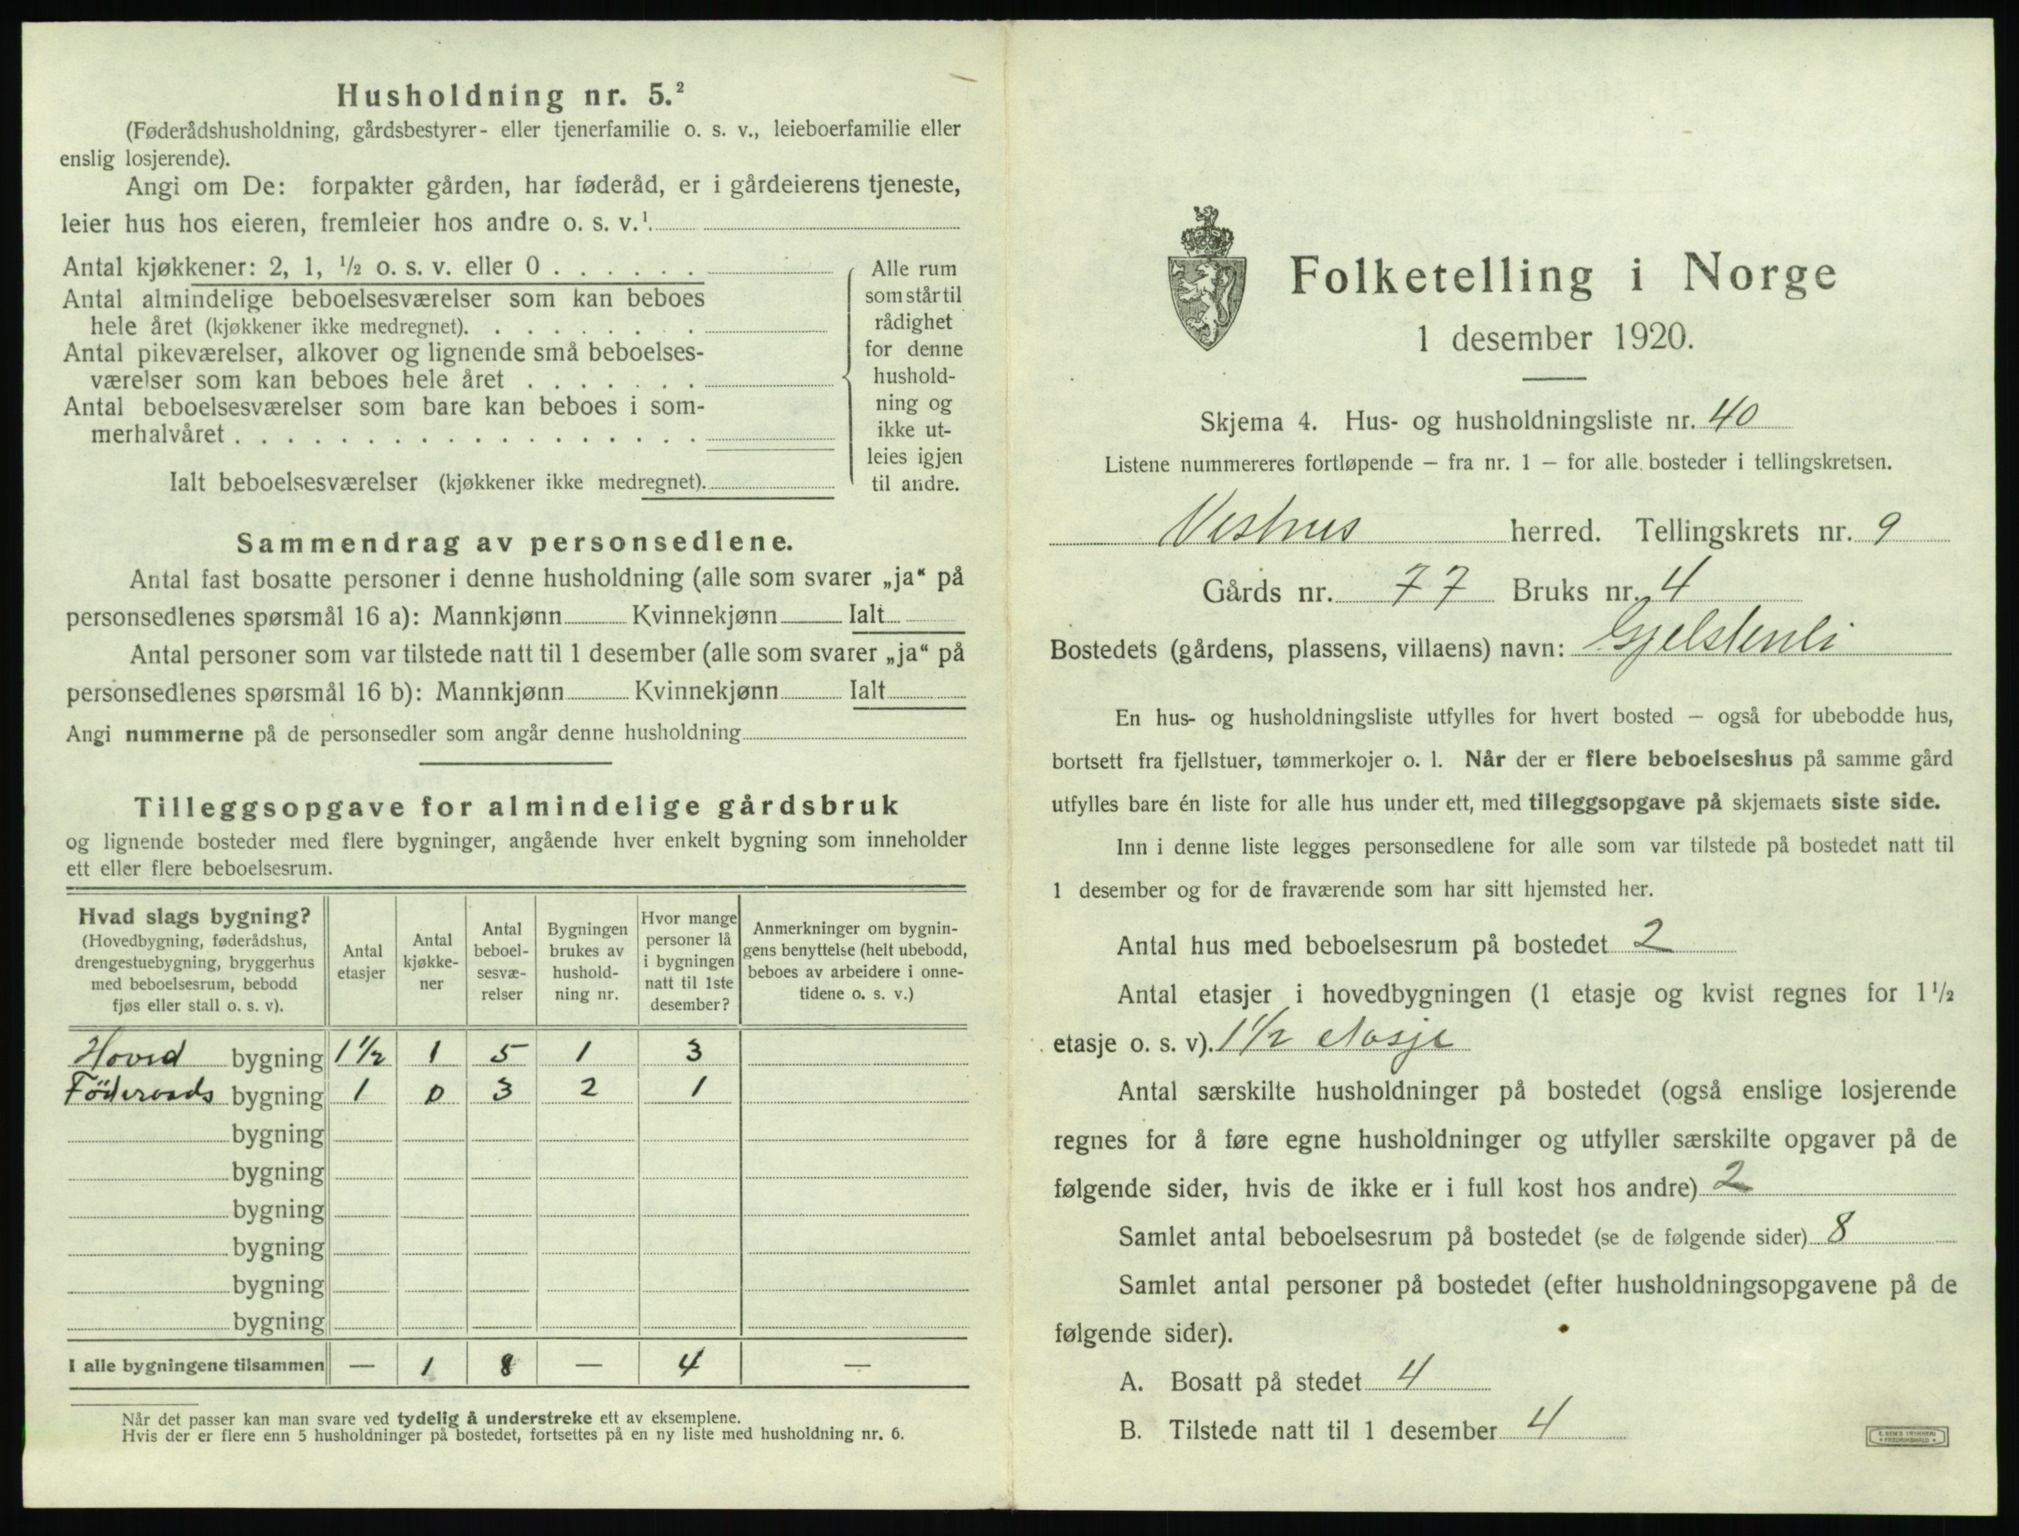 Husholdning nr. 5.²
(Føderådshusholdning, gårdsbestyrer- eller tjenerfamilie o. s. v., leieboerfamilie eller
enslig losjerende).
Angi om De: forpakter gården, har føderåd, er i gårdeierens tjeneste,
leier hus hos eieren, fremleier hos andre o. s. v.¹
Antal kjøkkener: 2, 1, ½ o. s. v. eller 0 . . . . . .
Antal almindelige beboelsesværelser som kan beboes
hele året (kjøkkener ikke medregnet). . . . . . . . .
Antal pikeværelser, alkover og lignende små beboelses-
værelser som kan beboes hele året . . . . . . .
Antal beboelsesværelser som bare kan beboes i som-
merhalvåret . . . . . . . . . . . . . . . . . .
Ialt beboelsesværelser (kjøkkener ikke medregnet).
Alle rum
som står til
rådighet
for denne
hushold-
ning og
ikke ut-
leies igjen
til andre.
Sammendrag av personsedlene.
Antal fast bosatte personer i denne husholdning (alle som svarer „ja“ på
personsedlenes spørsmål 16 a): Mannkjønn Kvinnekjønn Ialt
Antal personer som var tilstede natt til 1 desember (alle som svarer „ja“ på
personsedlenes spørsmål 16 b): Mannkjønn Kvinnekjønn Ialt
Angi nummerne på de personsedler som angår denne husholdning
Tilleggsopgave for almindelige gårdsbruk
og lignende bosteder med flere bygninger, angående hver enkelt bygning som inneholder
ett eller flere beboelsesrum.
Hvad slags bygning?
(Hovedbygning, føderådshus,
drengestuebygning, bryggerhus
med beboelsesrum, bebodd
fjøs eller stall o. s. v).
Antal
etasjer
Antal
kjøkke-
ner
Antal
beboel-
sesvæ-
relser
Bygningen
brukes av
hushold-
ning nr.
Hvor mange
personer lå
i bygningen
natt til 1ste
desember?
Anmerkninger om bygnin-
gens benyttelse (helt ubebodd,
beboes av arbeidere i onne-
tidene o. s. v.)
Hoved bygning 1½ 1 5 1 3
Föderaads bygning 1 0 3 2 1
bygning
bygning
bygning
bygning
bygning
bygning
I alle bygningene tilsammen — 1 8 — 4 —
Når det passer kan man svare ved tydelig å understreke ett av eksemplene.
Hvis der er flere enn 5 husholdninger på bostedet, fortsettes på en ny liste med husholdning nr. 6.
Folketelling i Norge
1 desember 1920.
Skjema 4. Hus- og husholdningsliste nr. 40
Listene nummereres fortløpende – fra nr. 1 – for alle bosteder i tellingskretsen.
Vestnes herred. Tellingskrets nr. 9
Gårds nr. 77 Bruks nr. 4
Bostedets (gårdens, plassens, villaens) navn: Gjelstenli
En hus- og husholdningsliste utfylles for hvert bosted – også for ubebodde hus,
bortsett fra fjellstuer, tømmerkojer o. l. Når der er flere beboelseshus på samme gård
utfylles bare én liste for alle hus under ett, med tilleggsopgave på skjemaets siste side.
Inn i denne liste legges personsedlene for alle som var tilstede på bostedet natt til
1 desember og for de fraværende som har sitt hjemsted her.
Antal hus med beboelsesrum på bostedet 2
Antal etasjer i hovedbygningen (1 etasje og kvist regnes for 1½
etasje o. s. v). 1½ etasje
Antal særskilte husholdninger på bostedet (også enslige losjerende
regnes for å føre egne husholdninger og utfyller særskilte opgaver på de
følgende sider, hvis de ikke er i full kost hos andre) 2
Samlet antal beboelsesrum på bostedet (se de følgende sider) 8
Samlet antal personer på bostedet (efter husholdningsopgavene på de
følgende sider).
A. Bosatt på stedet 4
B. Tilstede natt til 1 desember 4